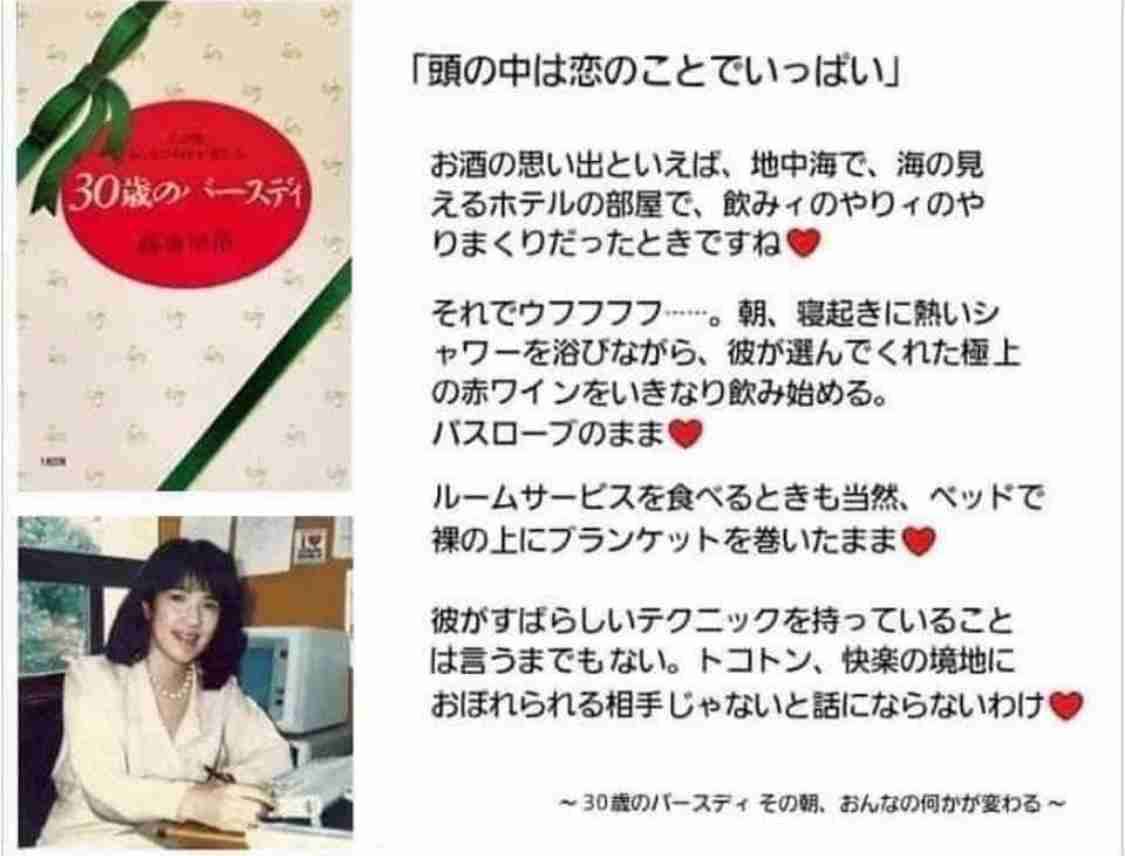 30歳のバースディ
「頭の中は恋のことでいっぱい」
お酒の思い出といえば、地中海で、海の見
えるホテルの部屋で、飲みィのやりィのや
りまくりだったときですね❤
それでウフフフフ……。朝、寝起きに熱いシ
ャワーを浴びながら、彼が選んでくれた極上
の赤ワインをいきなり飲み始める。
バスローブのまま❤
ルームサービスを食べるときも当然、ベッドで
裸の上にブランケットを巻いたまま❤
彼がすばらしいテクニックを持っていること
は言うまでもない。トコトン、快楽の境地に
おぼれられる相手じゃないと話にならないわけ❤
～30歳のバースディ その朝、おんなの何かが変わる～